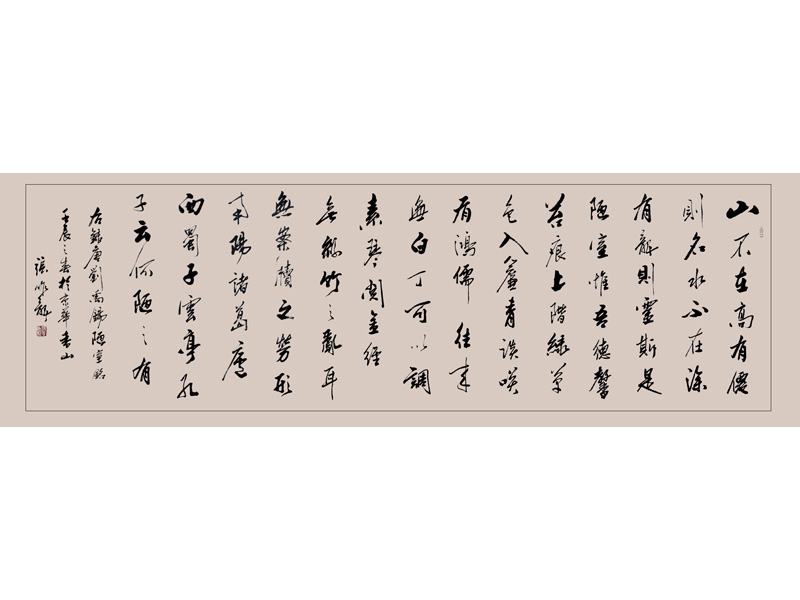 山不在高有僊
則名水不在深
有龍則靈斯是
陋室惟吾德馨
苔痕上階綠草
色入簾青談咲
有鴻儒往來
無白丁可以調
素琴閱金經
無絲竹之亂耳
無案牘之勞形
南陽諸葛廬
西蜀子雲亭孔
子云何陋之有
右錄唐劉禹錫陋室銘
壬辰之春於京華香山